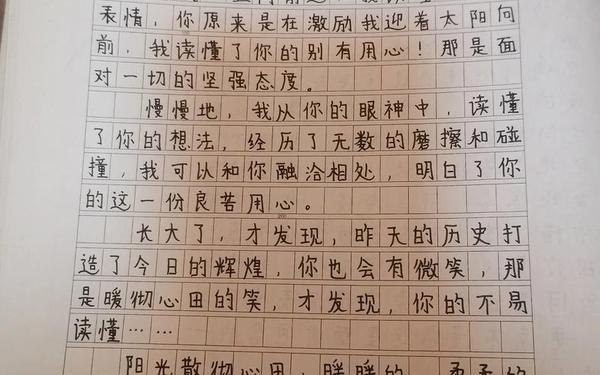 表情，你原来是在激励我迎着太阳向
前，我读懂了你的别有用心！那是面
对一切的坚强态度。
慢慢地，我从你的眼神中，读懂
了你的想法，经历了无数的磨擦和碰
撞，我可以和你融洽相处，明白了你
的这一份良苦用心。
长大了，才发现，昨天的历史打
造了今日的辉煌，你也会有微笑，那
是暖彻心田的笑，才发现，你的不易
读懂……
阳光散彻心田，暖暖的，柔柔的